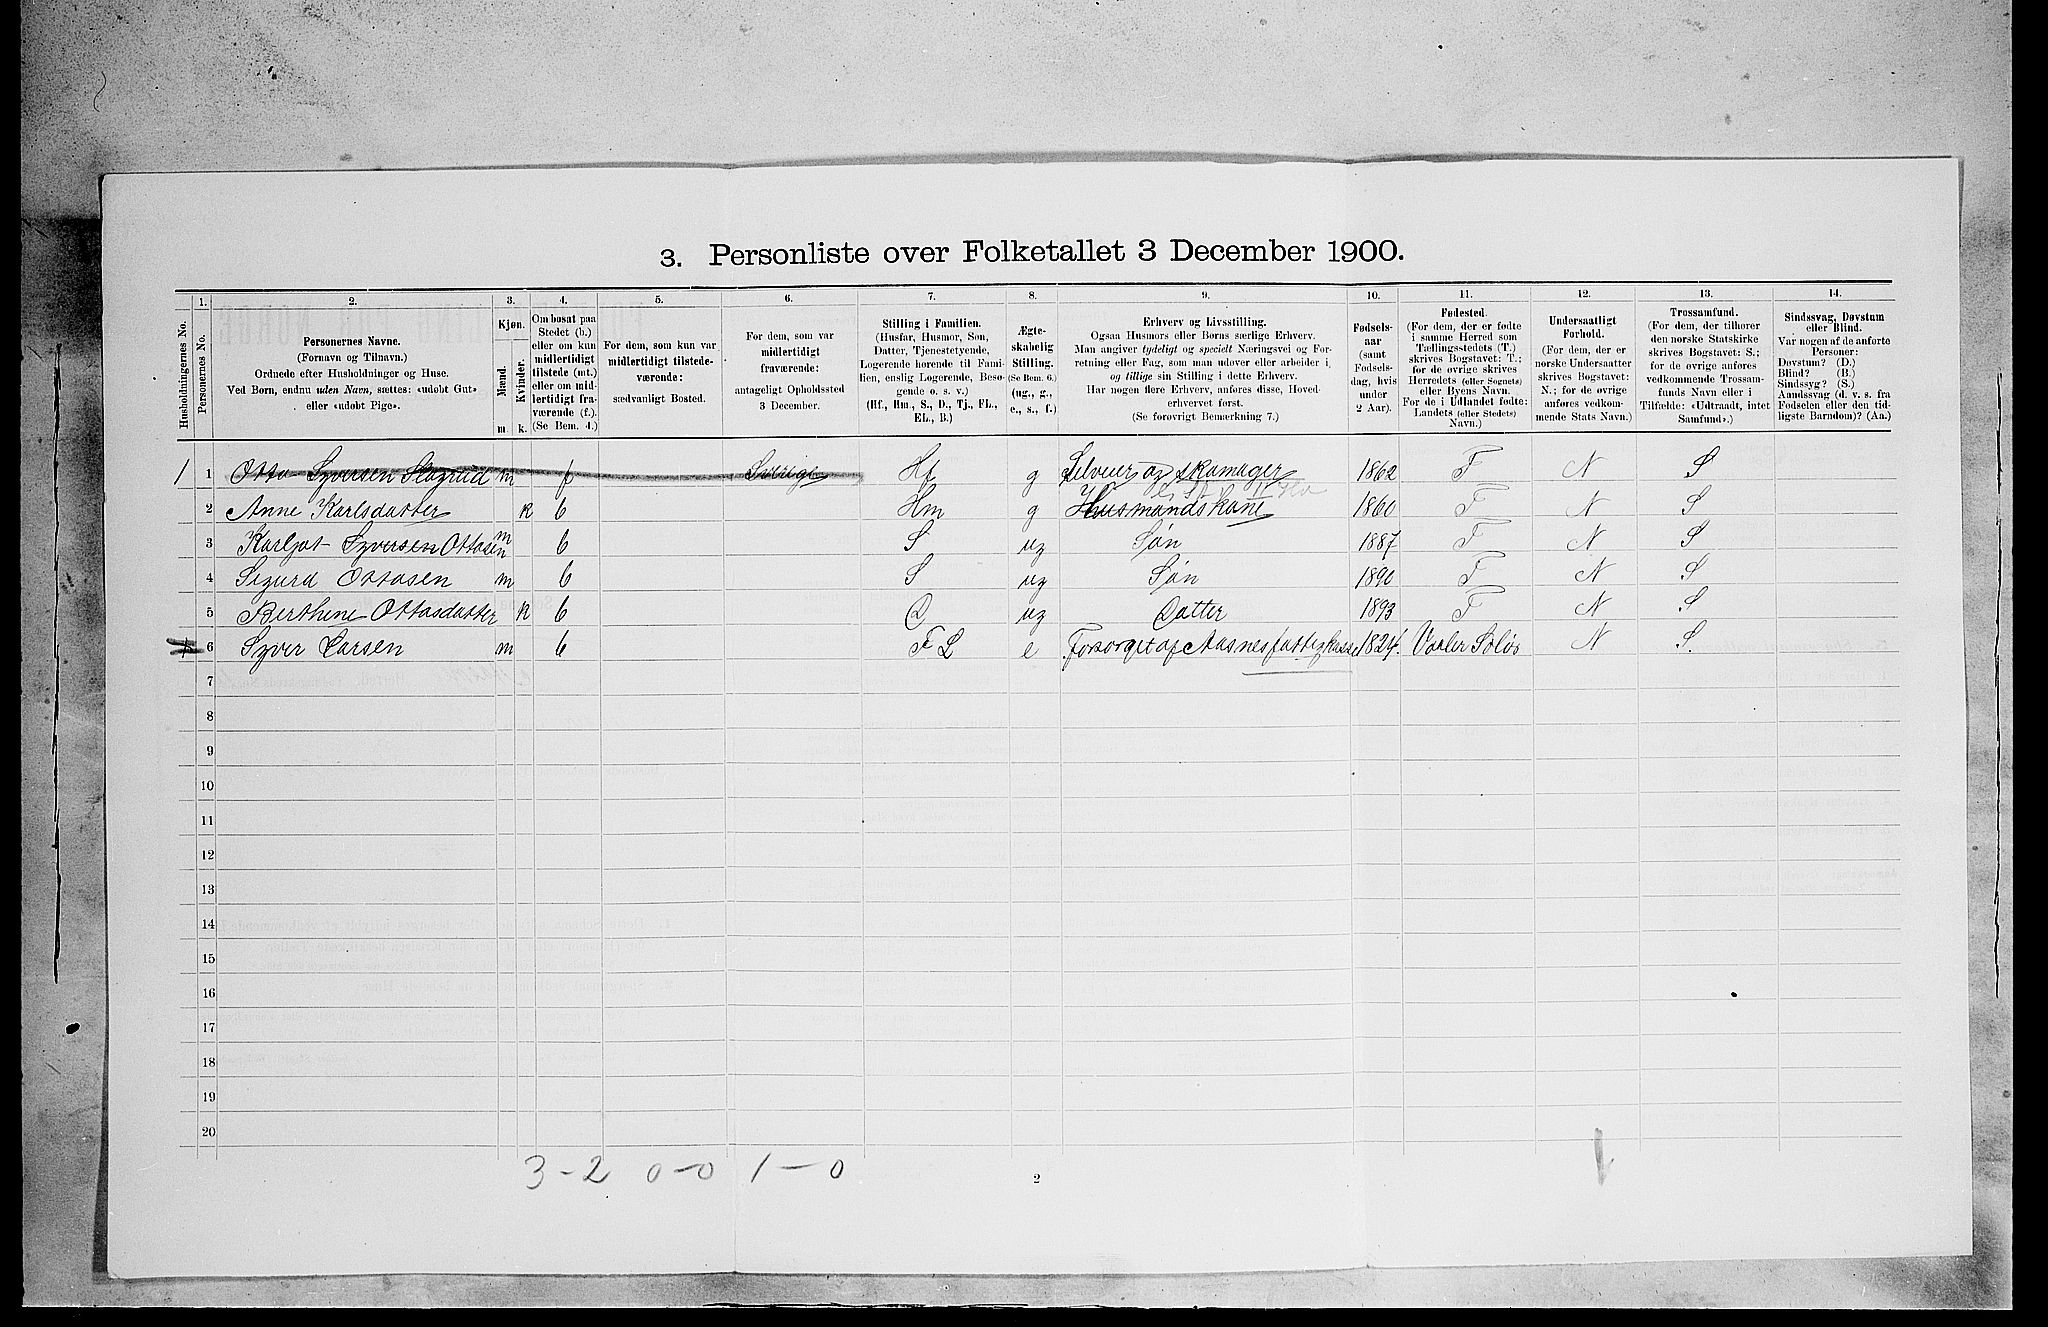 3. Personliste over Folketallet 3 December 1900.
1. 2. 3. 4. 5. 6. 7. 8. 9. 10. 11. 12. 13. 14.
Husholdningernes No.
Personernes No.
Personernes Navne.
(Fornavn og Tilnavn.)
Ordnede efter Husholdninger og Huse.
Ved Børn, endnu uden Navn, sættes: «udøbt Gut»
eller «udøbt Pige».
Kjøn.
Mænd.
Kvinder.
m. k.
Om bosat paa
Stedet (b.)
eller om kun
midlertidigt
tilstede (mt.)
eller om mid-
lertidigt fra-
værende (f.).
(Se Bem. 4.)
For dem, som kun var
midlertidigt tilstede-
værende:
sædvanligt Bosted.
For dem, som var
midlertidigt
fraværende:
antageligt Opholdssted
3 December.
Stilling i Familien.
(Husfar, Husmor, Søn,
Datter, Tjenestetyende,
Logerende hørende til Fami-
lien, enslig Logerende, Besø-
gende o. s. v.)
(Hf., Hm., S., D., Tj., FL.,
EL., B.)
Ægte-
skabelig
Stilling.
(Se Bem. 6.)
(ug., g.,
e., s., f.)
Erhverv og Livsstilling.
Ogsaa Husmors eller Børns særlige Erhverv.
Man angiver tydeligt og specielt Næringsvei og For-
retning eller Fag, som man udøver eller arbeider i,
og tillige sin Stilling i dette Erhverv.
Har nogen flere Erhverv, anføres disse, Hoved-
erhvervet først.
(Se forøvrigt Bemærkning 7.)
Fødsels-
aar
(samt
Fødsels-
dag, hvis
under
2 Aar).
Fødested.
(For dem, der er fødte
i samme Herred som
Tællingsstedets (T.)
skrives Bogstavet: T.;
for de øvrige skrives
Herredets (eller Sognets)
eller Byens Navn.
For de i Udlandet fødte:
Landets (eller Stedets)
Navn.)
Undersaatligt
Forhold.
(For dem, der er
norske Undersaatter
skrives Bogstavet:
N.; for de øvrige
anføres vedkom-
mende Stats Navn.)
Trossamfund.
(For dem, der tilhører
den norske Statskirke
skrives Bogstavet: S.;
for de øvrige anføres
vedkommende Trossam-
funds Navn eller i
Tilfælde: «Udtraadt, intet
Samfund».)
Sindssvag, Døvstum
eller Blind.
Var nogen af de anførte
Personer:
Døvstum? (D.)
Blind? (B.)
Sindssyg? (S.)
Aandssvag (d. v. s. fra
Fødselen eller den tid-
ligste Barndom)? (Aa.)
1 1 Otto Syversen m f Sverige Hf g Selveier og skomager 1862 T N S
2 Anne Karlsdatter k b Hm g Husmandskone 1860 T N S
3 Karljot Syversen Ottosen m b S ug Søn 1887 T N S
4 Sigurd Ottosen m b S ug Søn 1890 T N S
5 Berthine Ottosdatter k b D ug Datter 1893 T N S
6 Syver Larsen m b FL e Forsørget af Aasnes fattigkasse 1824. Vaaler Solør N S.
7
8
9
10
11
12
13
14
15
16
17
18
19
20
3-2 0-0 1-0
2